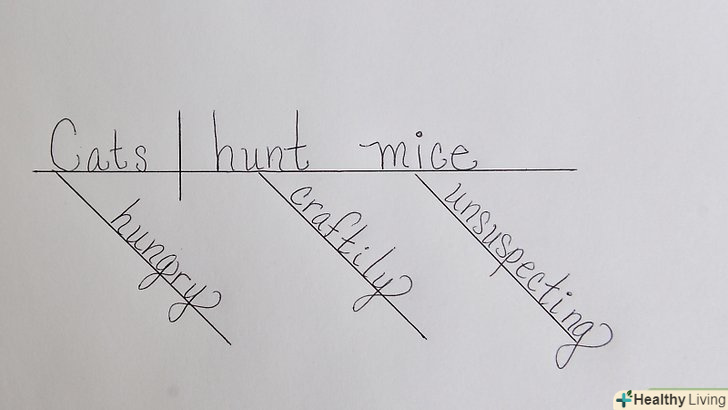 Cats hunt mice
hungry
craftily
unsuspecting
Healthy Living